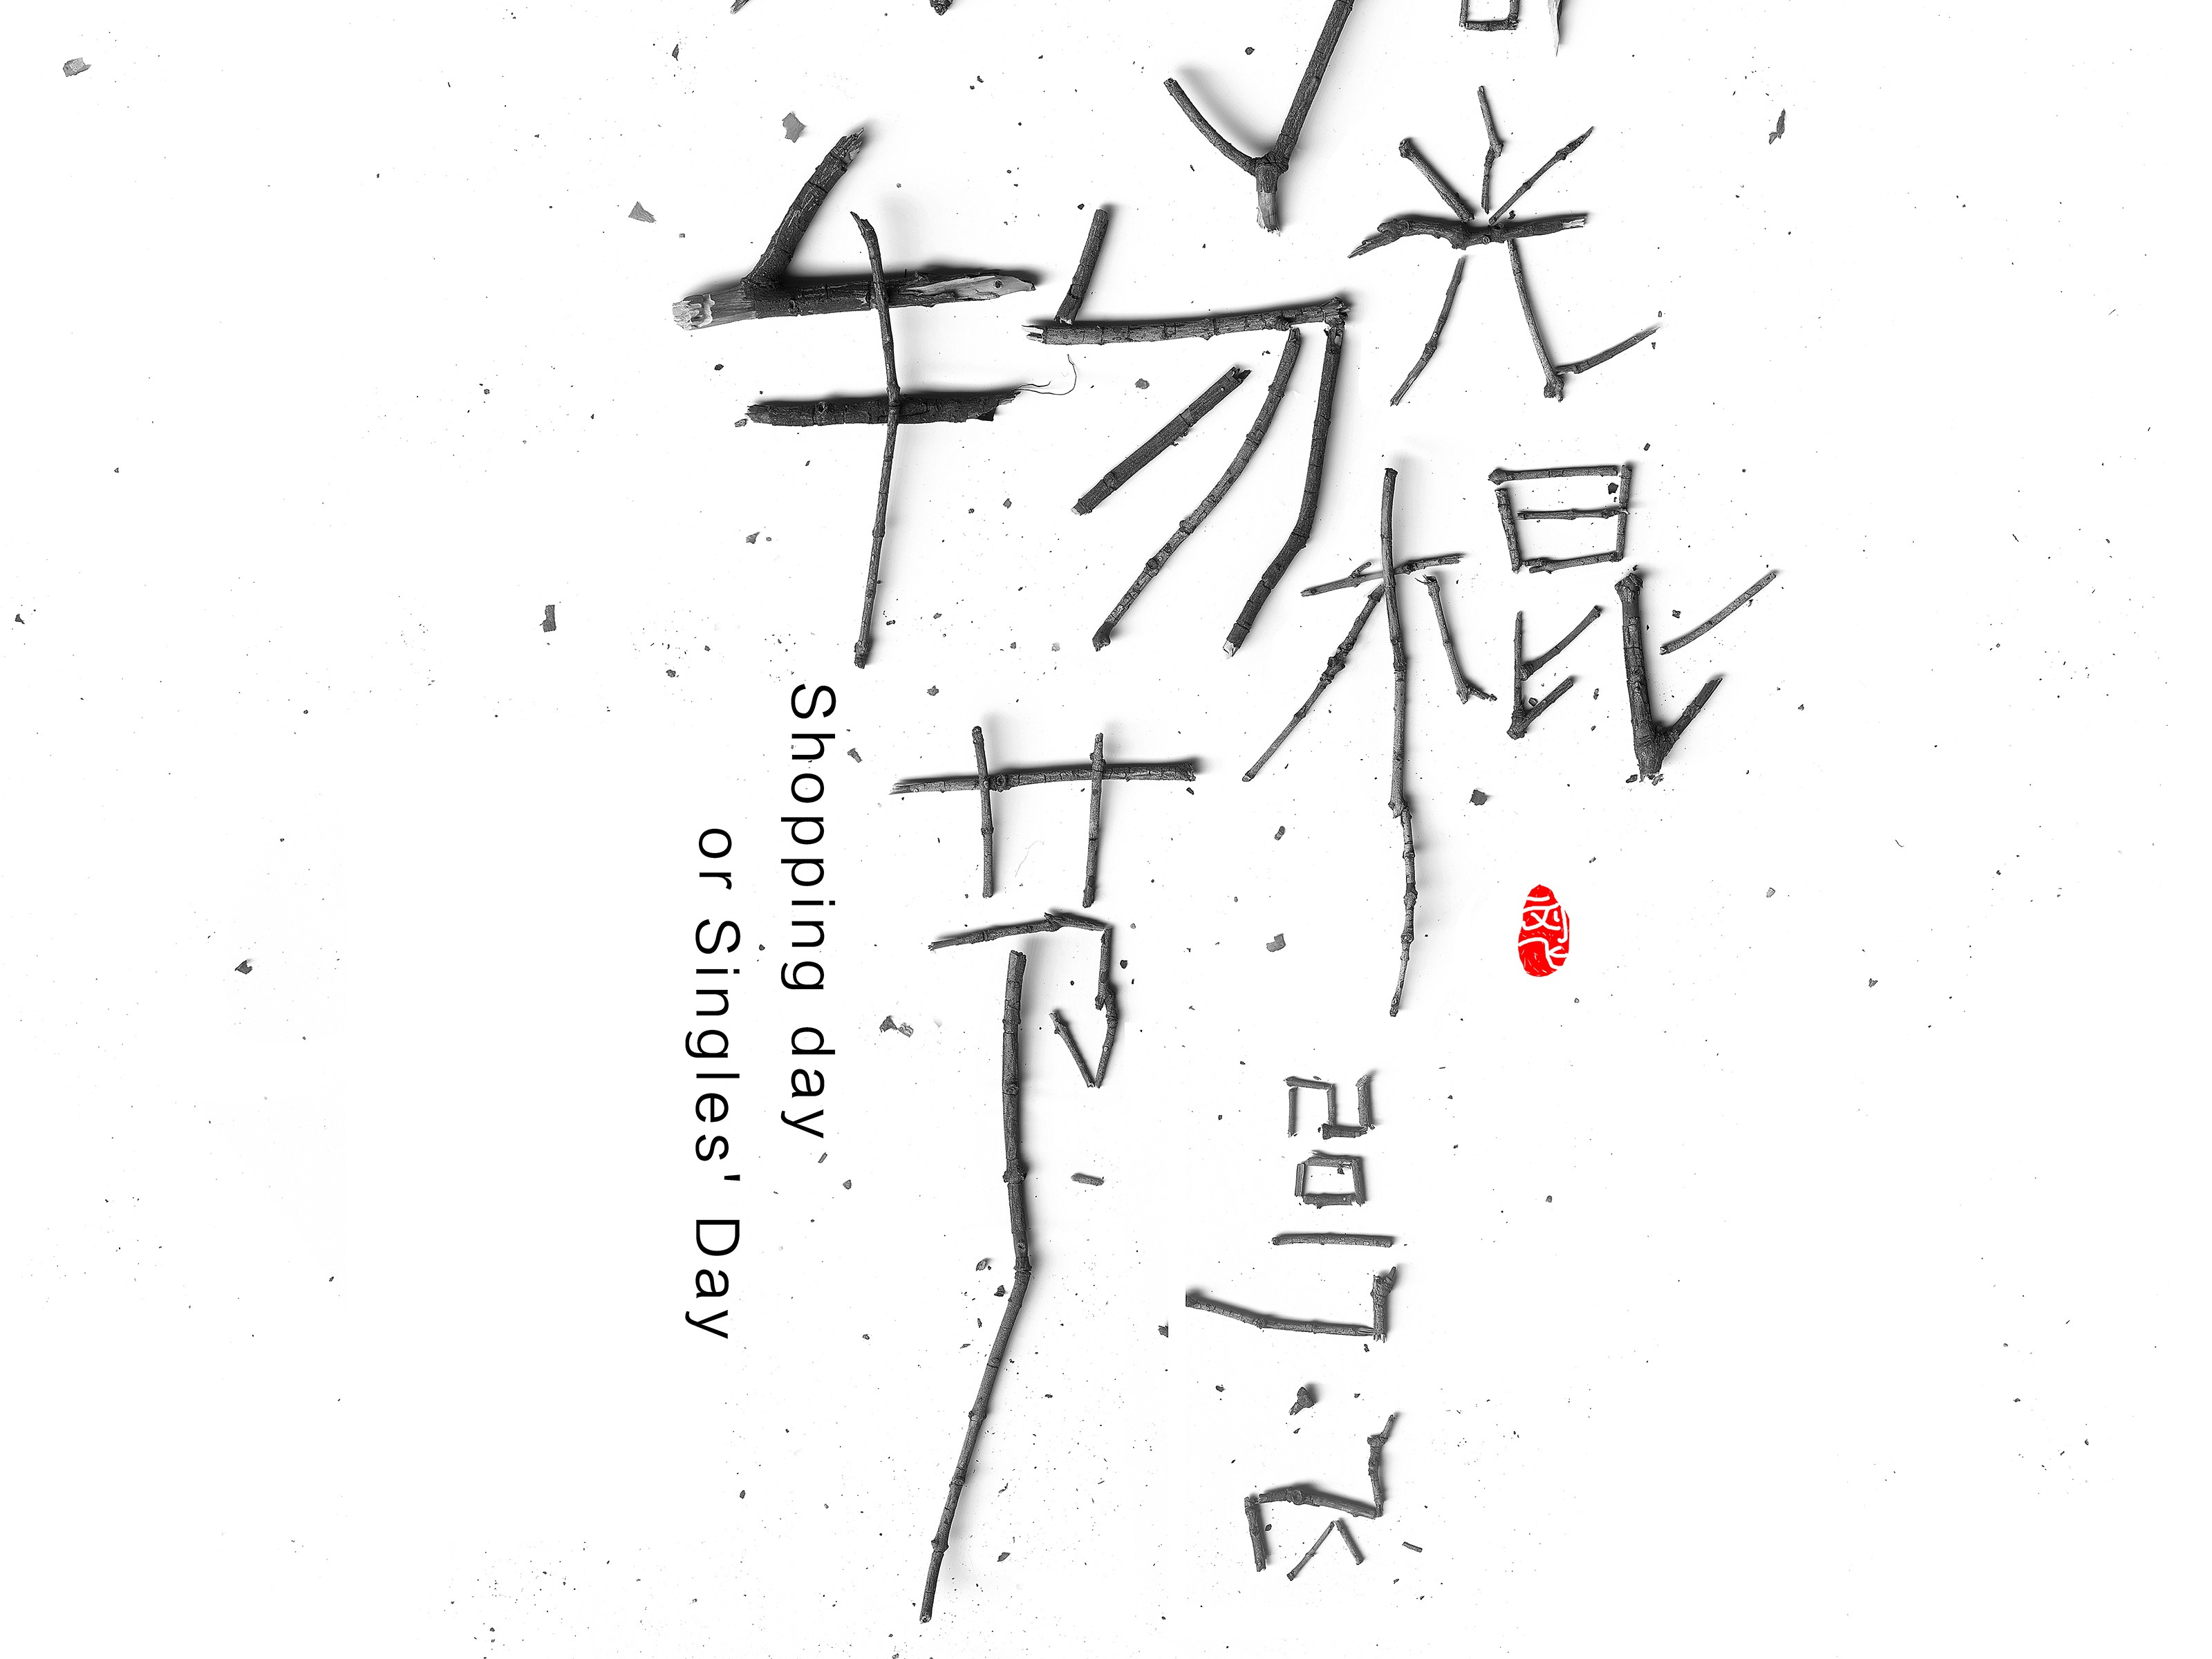 光棍
物节
2017.
Shopping day
or Singles' Day